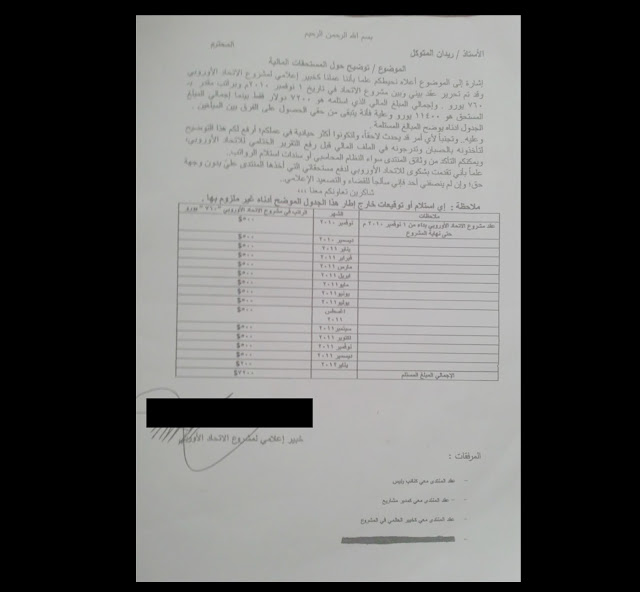 بسم الله الرحمن الرحيم
الأستاذ / ريدان المتوكل المحترم
الموضوع / توضيح حول المستحقات المالية
إشارة إلى الموضوع أعلاه نحيطكم علما بأننا عملنا كخبير إعلامي لمشروع الاتحاد الأوروبي
وقد تم تحرير عقد بيني وبين مشروع الاتحاد في تاريخ ١ نوفمبر ٢٠١٠م وبراتب مقدر بـ
٧٦٠ يورو . وإجمالي المبلغ المالي الذي استلمته هو ٧٢٠٠ دولار فقط بينما إجمالي المبلغ
المستحق هو ١١٤٠٠ يورو وعلية فأنة يتبقى من حقي الحصول على الفرق بين المبلغين .
الجدول ادناه يوضح المبالغ المستلمة .
وعليه.. وتجنباً لأي أمر قد يحدث لاحقاً، ولتكونوا أكثر حيادية في عملكم؛ أرفع لكم هذا التوضيح
لتأخذونه بالحسبان وتدرجونه في الملف المالي قبل رفع التقرير الختامي للاتحاد الأوروبي،
ويمكنكم التأكد من وثائق المنتدى سواء النظام المحاسبي أو سندات استلام الرواتب..
علما بأني تقدمت بشكوى للاتحاد الأوروبي لدفع مستحقاتي التي أخذها المنتدى عليّ بدون وجهة
حق؛ وإن لم ينصفني أحد فإني سألجأ للقضاء والتصعيد الإعلامي..
شاكرين تعاونكم معنا ،،،
ملاحظة : إي استلام أو توقيعات خارج إطار هذا الجدول الموضح أدناه غير ملزوم بها .
ملاحظات الشهر الراتب في مشروع الاتحاد الأوروبي "٧٦٠"
عقد مشروع الاتحاد الأوروبي بداء من ١ نوفمبر ٢٠١٠ م نوفمبر ٢٠١٠ $٥٠٠
حتى نهاية المشروع
ديسمبر ٢٠١٠ $٥٠٠
يناير ٢٠١١ $٥٠٠
فبراير ٢٠١١ $٥٠٠
مارس ٢٠١١ $٥٠٠
ابريل ٢٠١١ $٥٠٠
مايو ٢٠١١ $٥٠٠
يونيو ٢٠١١ $٥٠٠
يوليو ٢٠١١ $٥٠٠
اغسطس $٥٠٠
٢٠١١
سبتمبر ٢٠١١ $٥٠٠
اكتوبر ٢٠١١ $٥٠٠
نوفمبر ٢٠١١ $٥٠٠
ديسمبر ٢٠١١ $٥٠٠
يناير ٢٠١٢ $٢٠٠
الإجمالي المبلغ المستلم $٧٢٠٠
خبير إعلامي لمشروع الاتحاد الأوروبي
المرفقات :
- عقد المنتدى معي كنائب رئيس
- عقد المنتدى معي كمدير مشاريع
- عقد المنتدى معي كخبير اعلامي في المشروع